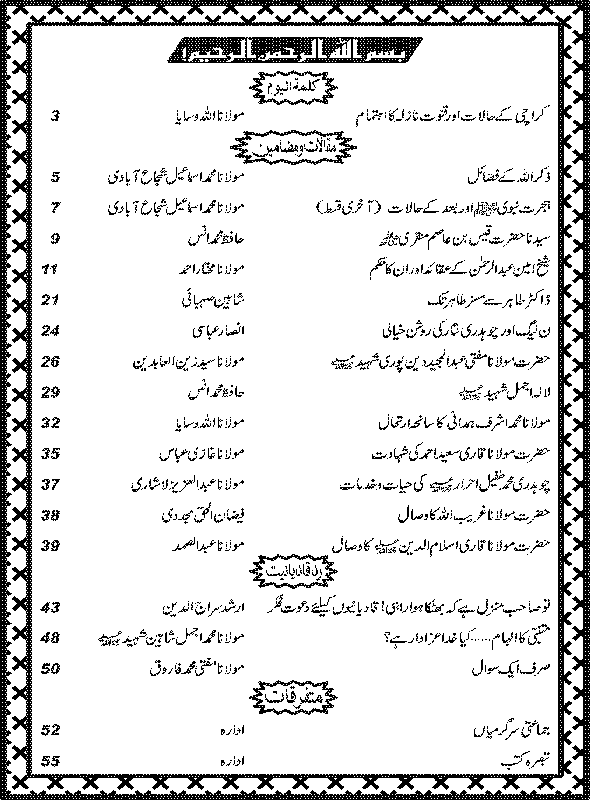 بسم اللہ الرحمن الرحیم
کلمۃ الیوم
کراچی کے حالات اور قنوت نازلہ کا اہتمام مولانا اللہ وسایا 3
مقالات و مضامین
ذکر اللہ کے فضائل مولانا محمد اسماعیل شجاع آبادی 5
ہجرت نبوی ﷺ اور بعد کے حالات (آخری قسط) مولانا محمد اسماعیل شجاع آبادی 7
سیدنا حضرت قیس بن عاصم منقری حافظ محمد انس 9
شیخ امین عبدالرحمٰن کے عقائد اور ان کا حکم مولانا مختار احمد 11
ڈاکٹر طاہر سے مسٹر طاہر تک شاہین صہبائی 21
ن لیگ اور چوہدری نثار کی روشن خیالی انصار عباسی 24
حضرت مولانا مفتی عبدالمجید دین پوری شہید مولانا سید زین العابدین 26
لالہ اجمل شہید حافظ محمد انس 29
مولانا محمد اشرف ہمدانی کا سانحہ ارتحال مولانا اللہ وسایا 32
حضرت مولانا قاری سعید احمد کی شہادت مولانا غازی عباس 35
چوہدری محمد طفیل احرار کی حیات و خدمات مولانا عبدالعزیز لاشاری 37
حضرت مولانا غریب اللہ کا وصال فیضان الحق مجددی 38
حضرت مولانا قاری اسلام الدین کا وصال مولانا عبدالصمد 39
رد قادیانیت
تو صاحب منزل ہے کہ بھٹکا ہوا راہی! قادیانیوں کیلئے دعوت فکر ارشد سراج الدین 43
متنبّی کا الہام ..... کیا خدا عزادار ہے؟ مولانا محمد اجمل شاہین شہید 48
صرف ایک سوال مولانا مفتی محمد فاروق 50
متفرقات
جماعتی سرگرمیاں ادارہ 52
تبصرہ کتب ادارہ 55